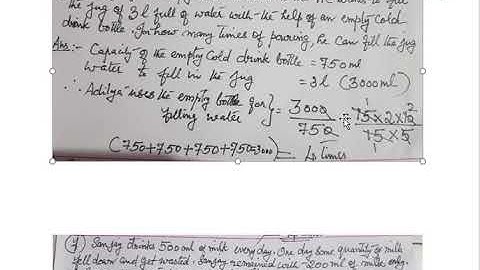 the jug of 3 l full of water with the help of an empty Cold
drink bottle. In how many times of pouring, he can fill the jug
Ans :- Capacity of the empty Cold drink bottle = 750 ml
Water to fill in the jug = 3 l (3000 ml)
∴ Aditya uses the empty bottle for filling water } = 3000/750 = 75×2×12/75×5
(750+750+750+750=3000) = 4 times
Sanjay drinks 500 ml of milk every day. One day some quantity of milk
fell down and get wasted. Sanjay remained with 200 ml of milk only.